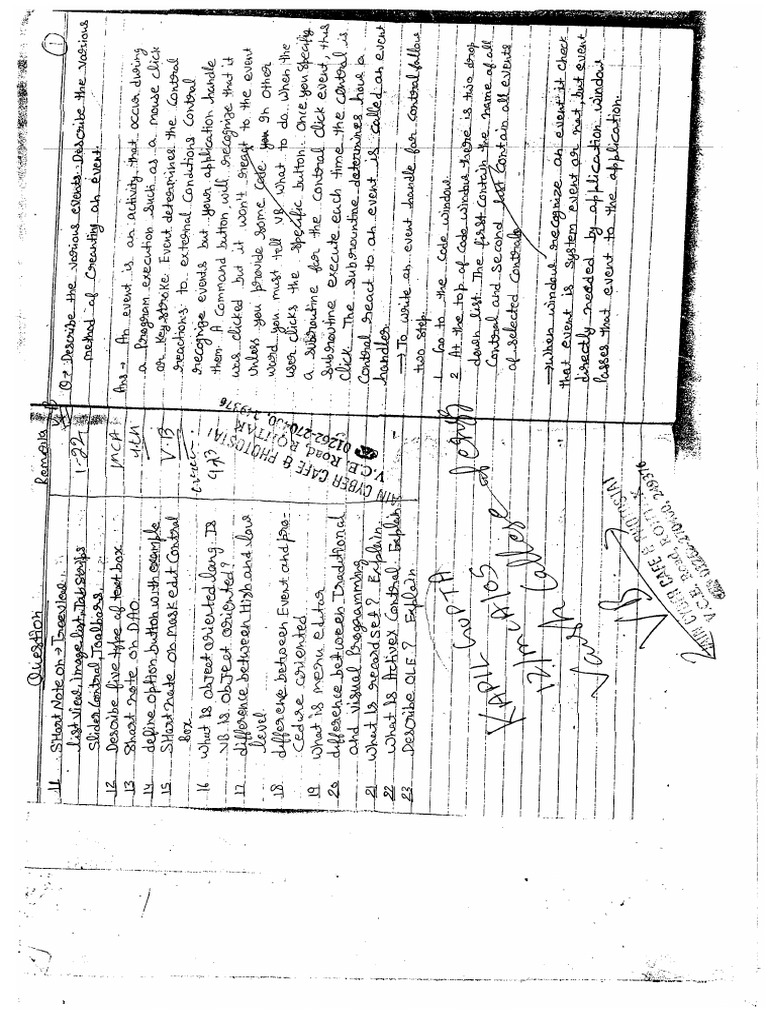 Question
Remarks
11 Short Note on → Treeview
listview, image list, Tab strips
Slider Control, Toolbars
12 Describe five type of text box
13 Short note on DAO
14 define option button with example
15 Short note on mask edit Control
Box
16 What is object oriented lang. Is
VB is object oriented?
17 difference between High and low
level
18 difference between Event and pro-
Cedure oriented
19 What is menu editor
20 difference between Traditional
and visual Programming
21 What is recordset? Explain
22 What is ActiveX Control Explain
23 Describe OLE? Explain
1-22
MCA
4th
V.B
KAPIL GUPTA
12/MCA/05
VB
JAIN CYBER CAFE & PHOTOSTAT
V.C.E. Road, ROHTAK
01262-270400, 249376
JAIN CYBER CAFE & PHOTOSTAT
V.C.E. Road, ROHTAK
01262-270400, 249376
1
Q → Describe the various events. Describe the various
method of Creanting an event.
Ans → An event is an activity that occur during
a Program execution such as a mouse click
or Keystroke. Event determines the Control
reactions to external Conditions Control
recognize events but your application handle
them A Command button will recognize that it
was clicked but it won't react to the event
Unless you provide some Code. you In other
word you must tell VB what to do when the
user clicks the specific button. Once you specify
a subroutine for the control click event, this
Subroutine execute each time the control is
Click The Subrountine determines how a
Control react to an event is called an event
handler
→ To write an event handle for control follow
two step.
1 Go to the code window.
2 At the top of code window there is two drop
down list. The first contain the name of all
Control and second list contain all events
of selected Controls
→ When window recognize an event it check
that event is system event or not, but event
directly needed by application window
passes that event to the application.